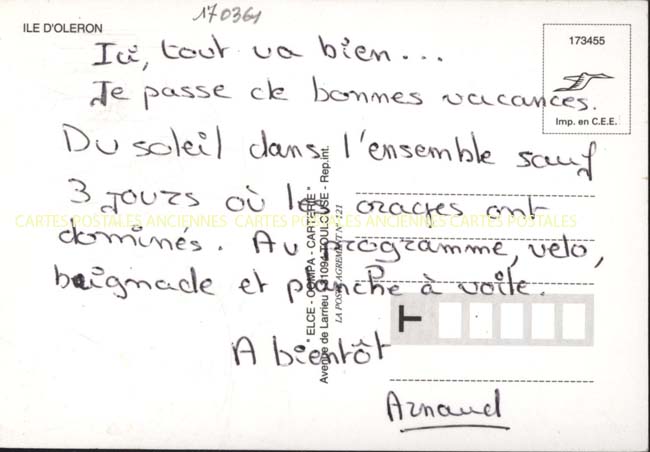 170361
ILE D'OLERON
173455
Imp. en C.E.E.
Ici, tout va bien...
Je passe de bonnes vacances.
Du soleil dans l'ensemble sauf
3 jours où les orages ont
dominés. Au programme, velo,
baignade et planche à voile.
A bientôt
Arnaud
CARTES POSTALES ANCIENNES CARTES POSTALES ANCIENNES CARTES POSTALES
" ELCE - COMPA - CARTERIE "
Avenue de Larrieu 31094 TOULOUSE - Rep.int.
LA POSTE AGREMENT N°